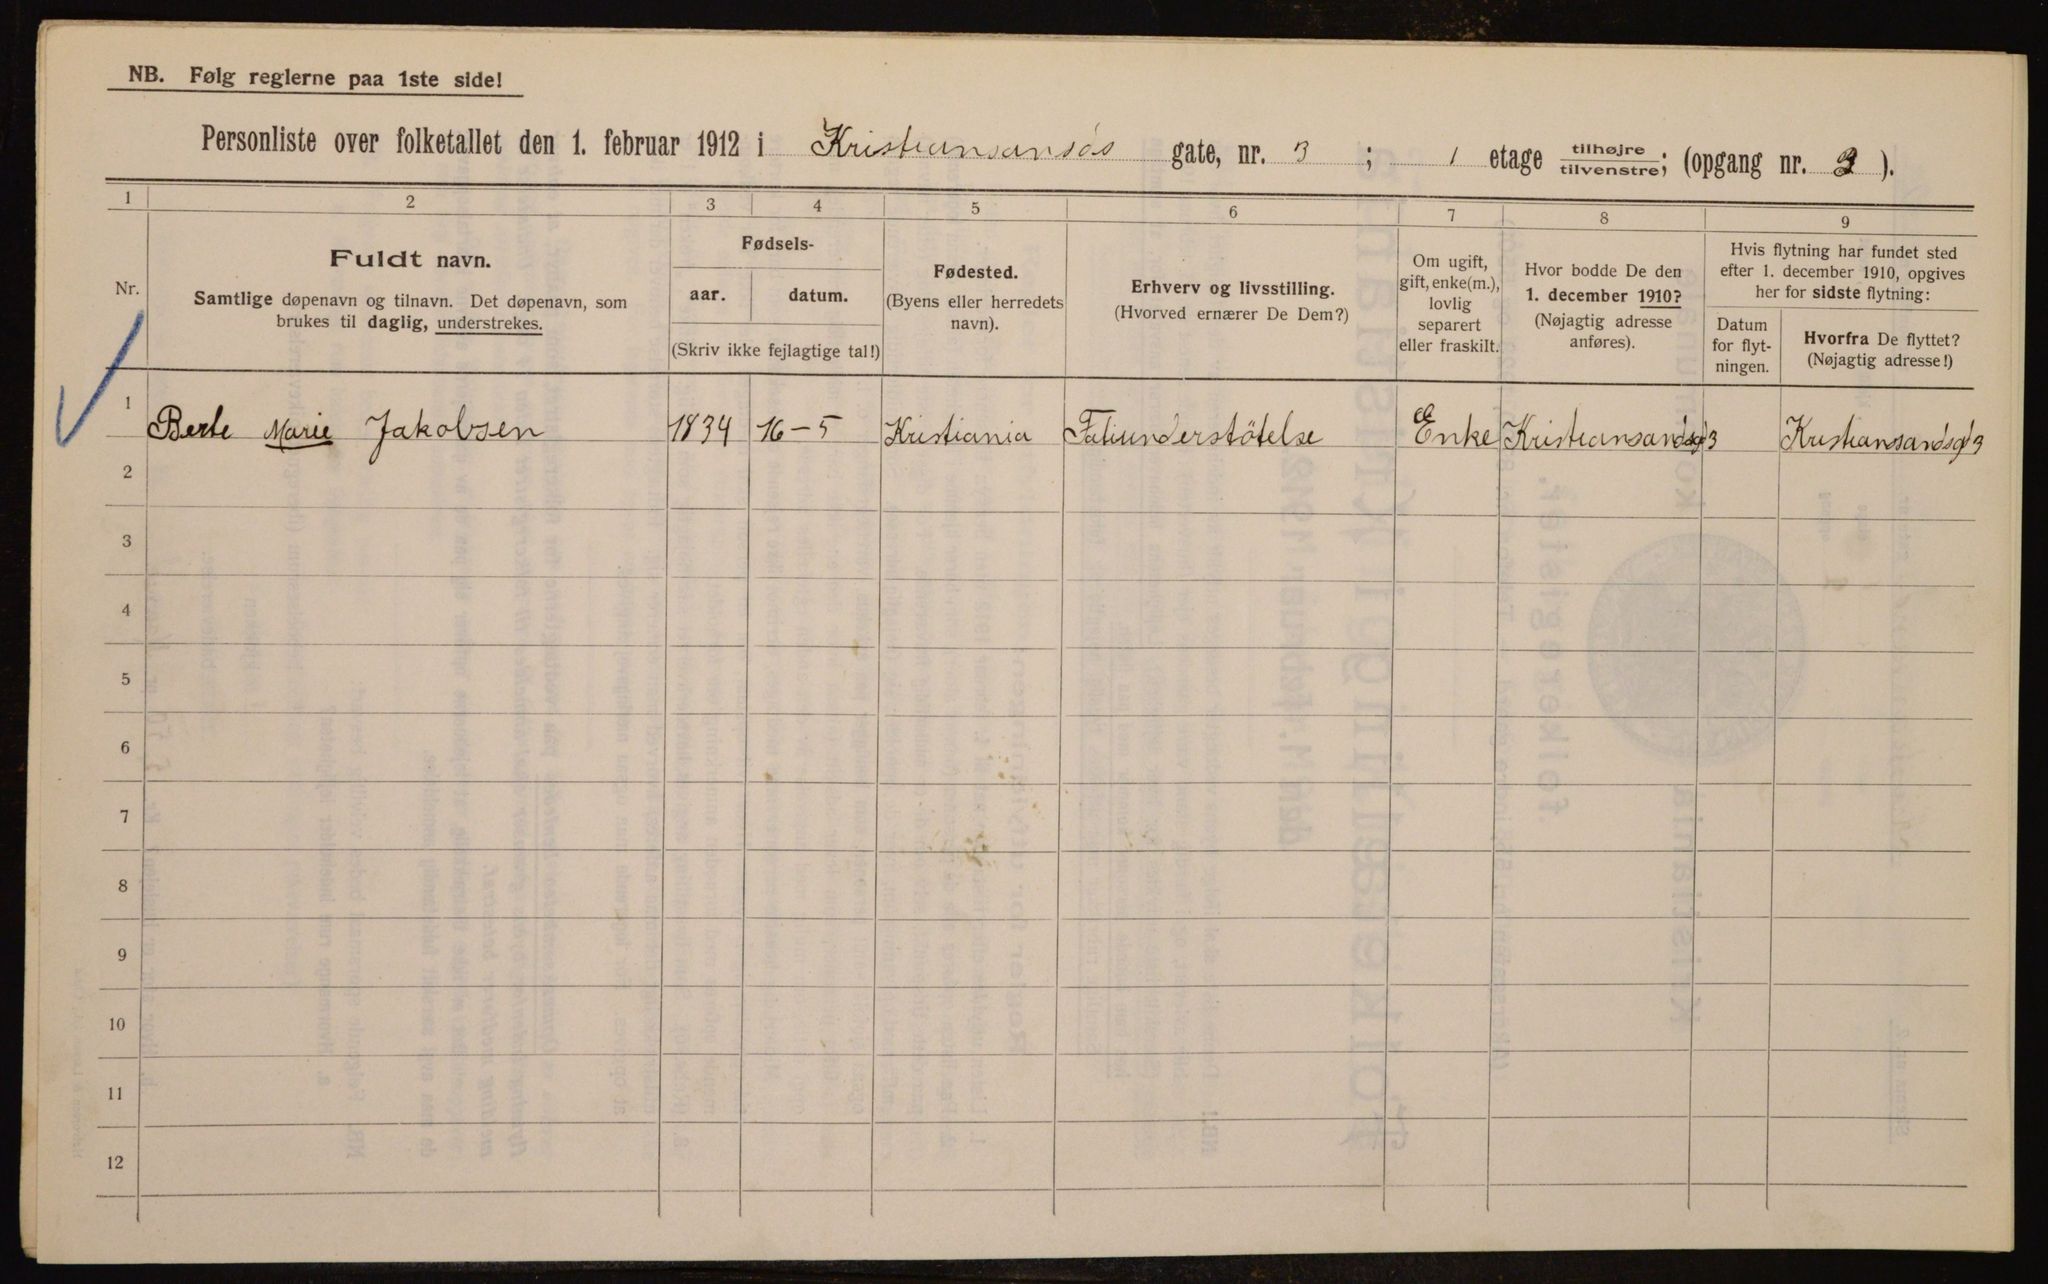 NB. Følg reglerne paa 1ste side!
Personliste over folketallet den 1. februar 1912 i Kristiansands gate, nr. 3 ; 1 etage tilhøjre/tilvenstre; (opgang nr. 3 ).
1 2 3 4 5 6 7 8 9
Nr.
Fuldt navn.
Samtlige døpenavn og tilnavn. Det døpenavn, som
brukes til daglig, understrekes.
Fødsels-
aar. datum.
(Skriv ikke fejlagtige tal!)
Fødested.
(Byens eller herredets
navn).
Erhverv og livsstilling.
(Hvorved ernærer De Dem?)
Om ugift,
gift, enke(m.),
lovlig
separert
eller fraskilt.
Hvor bodde De den
1. december 1910?
(Nøjagtig adresse
anføres).
Hvis flytning har fundet sted
efter 1. december 1910, opgives
her for sidste flytning:
Datum
for flyt-
ningen.
Hvorfra De flyttet?
(Nøjagtig adresse!)
1 Berte Marie Jakobsen 1834 16-5 Kristiania Fatiunderstötelse Enke Kristiansandsg 3 Kristiansandsg 3
2
3
4
5
6
7
8
9
10
11
12